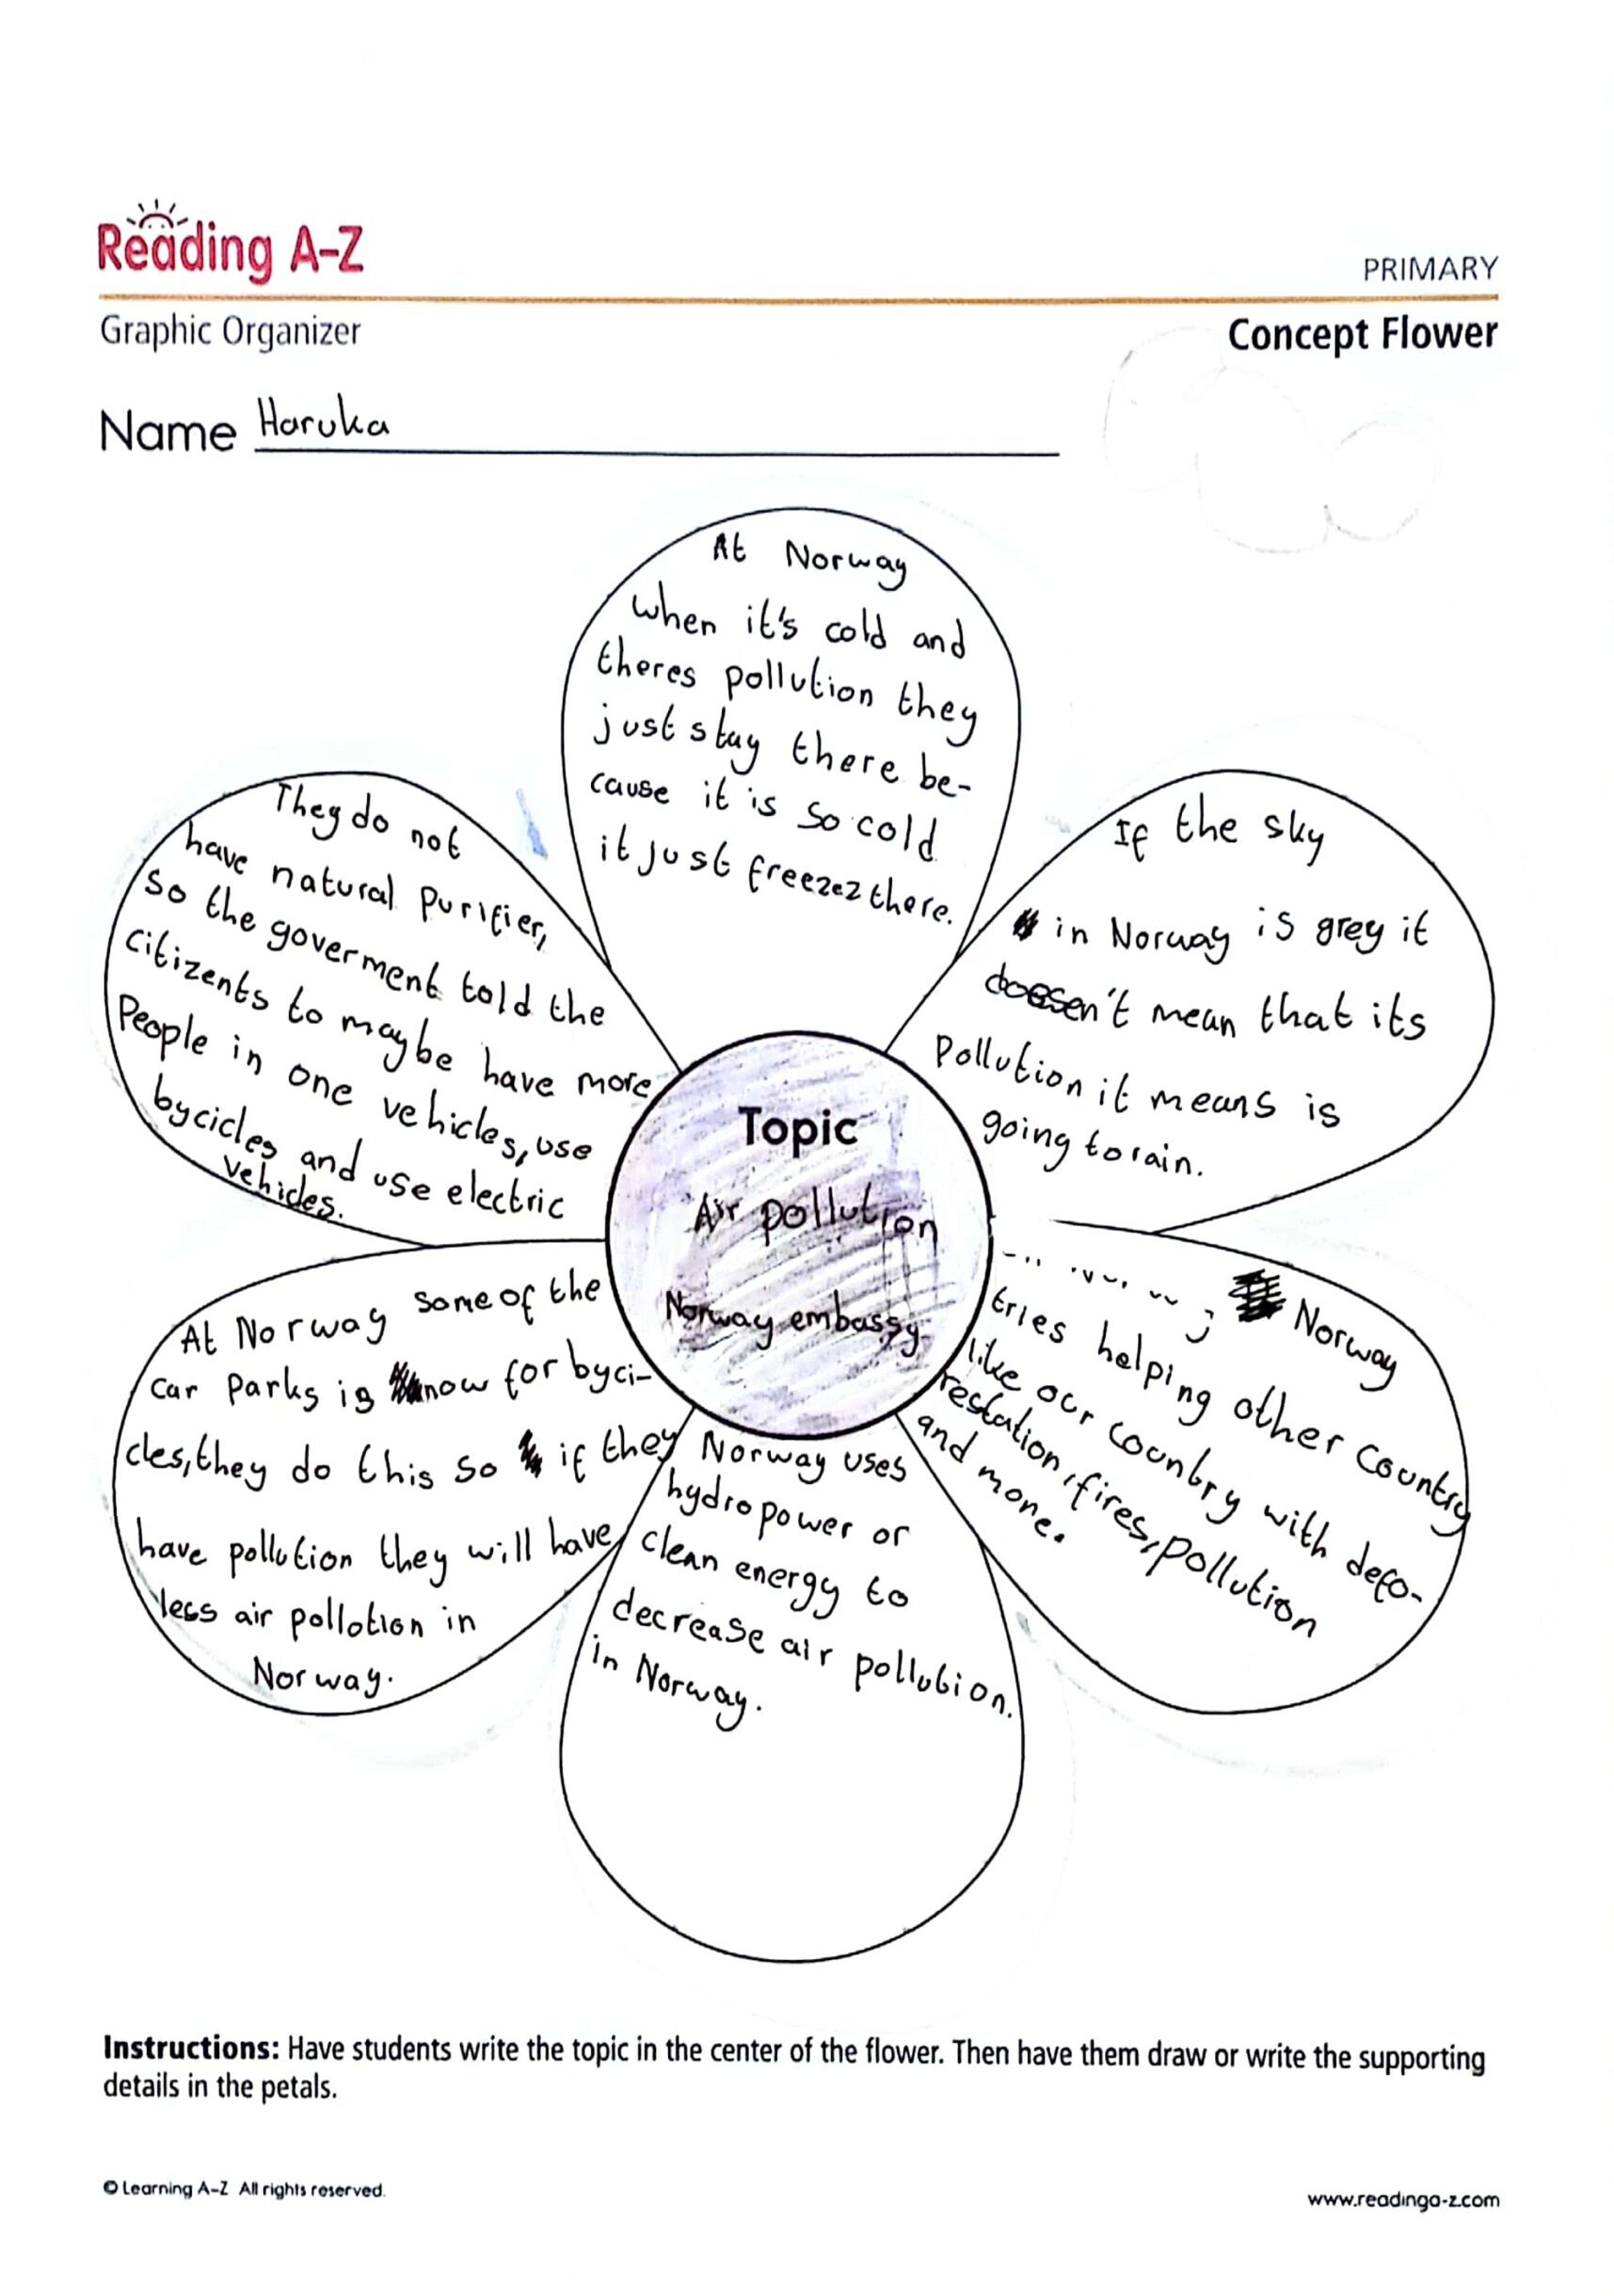 Reading A-Z
PRIMARY
Graphic Organizer
Concept Flower
Name Haruka
At Norway
when it's cold and
theres pollution they
just stay there be-
cause it is so cold
it just freezez there.
If the sky
in Norway is grey it
doesen't mean that its
pollution it means is
going to rain.
Norway
tries helping other country
like our country with defo-
restation, fires, pollution
and more.
Norway uses
hydropower or
clean energy to
decrease air pollution.
in Norway.
At Norway some of the
car parks is now for byci-
cles, they do this so if they
have pollution they will have
less air pollotion in
Norway.
They do not
have natural purifier,
so the goverment told the
citizents to maybe have more
people in one vehicles, use
bycicles and use electric
vehicles.
Topic
Air pollution
Norway embassy
Instructions: Have students write the topic in the center of the flower. Then have them draw or write the supporting
details in the petals.
© Learning A-Z All rights reserved.
www.readinga-z.com